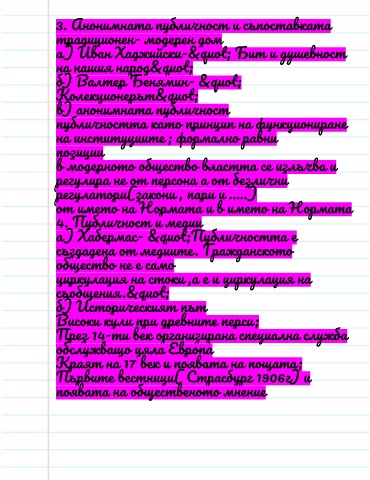 3. Анонимната публичност и съпоставката
традиционен- модерен дом
а) Иван Хаджийски-&quot; Бит и душевност
на нашия народ&quot;
б) Валтер Бенямин- &quot;
Колекционерът&quot;
в) анонимната публичност
публичността като принцип на функциониране
на институциите ; формално равни
позиции
в модерното общество властта се излъчва и
регулира не от персона а от безлични
регулатори( закони , пари и .....)
от името на Нормата и в името на Нормата
4. Публичност и медии
а) Хабермас- &quot;Публичността е
създадена от медиите. Гражданското
общество не е само
циркулация на стоки ,а е и циркулация на
съобщения.&quot;
б) Историческият път
Високи кули при древните перси;
През 14-ти век организирана специална служба
обслужващо цяла Европа
Краят на 17 век и появата на пощата;
Първите вестници( Страсбург 1906г) и
появата на общественото мнение